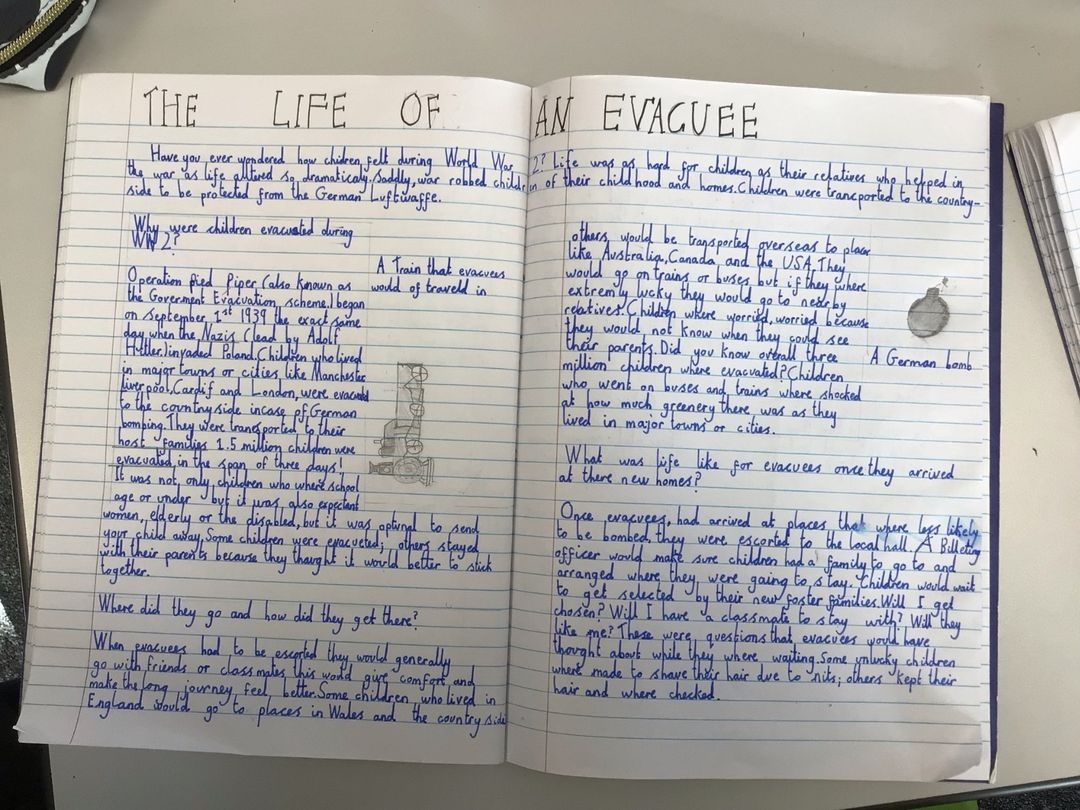 THE LIFE OF AN EVACUEE
Have you ever wondered how chidren felt during World War 2? Life was as hard for children as their relatives who helped in
the war as life altered so dramaticaly. Saddly, war robbed childrin of their childhood and homes. Children were trancported to the country-
side to be protected from the German Luftwaffe.
Why were children evacuated during
WW2?
A Train that evacuees
would of traveld in
Operation Pied Piper (also known as
the Goverment Evacuation scheme.) began
on september 1st 1939 the exact same
day when the Nazis (lead by Adolf
Hitler.) invaded Poland. Children who lived
in major towns or cities like Manchester
liverpool, Cardif and London, were evacuated
to the countryside incase of German
bombing. They were transported to their
host families 1.5 million children were
evacuated in the span of three days!
It was not only children who where school
age or under but it was also expectant
women, elderly or the disabled, but it was optinal to send
your child away. Some children were evacueted; others stayed
with their parents because they thaught it would better to stick
together.
Where did they go and how did they get there?
When evacuees had to be escorted they would generally
go with friends or classmates this would give comfort and
make the long journey feel better. Some children who lived in
England would go to places in Wales and the country side
others would be transported overseas to places
like Australia, Canada and the USA. They
would go on trains or buses but if they where
extremly lucky they would go to nearby
relatives. Children where worried, worried because
they would not know when they could see
their parents. Did you know overall three
million children where evacuated? Children
who went on buses and trains where shocked
at how much greenery there was as they
lived in major towns or cities.
A German bomb
What was life like for evacuees once they arrived
at there new homes?
Once evacuees, had arrived at places that where less likely
to be bombed, they were escorted to the local hall. A Billeting
officer would make sure children had a family to go to and
arranged where they were going to stay. Children would wait
to get selected by their new foster families. Will I get
chosen? Will I have a classmate to stay with? Will they
like me? These were questions that evacuees would have
thought about while they where waiting. Some unlucky children
where made to shave their hair due to nits; others kept their
hair and where checked.